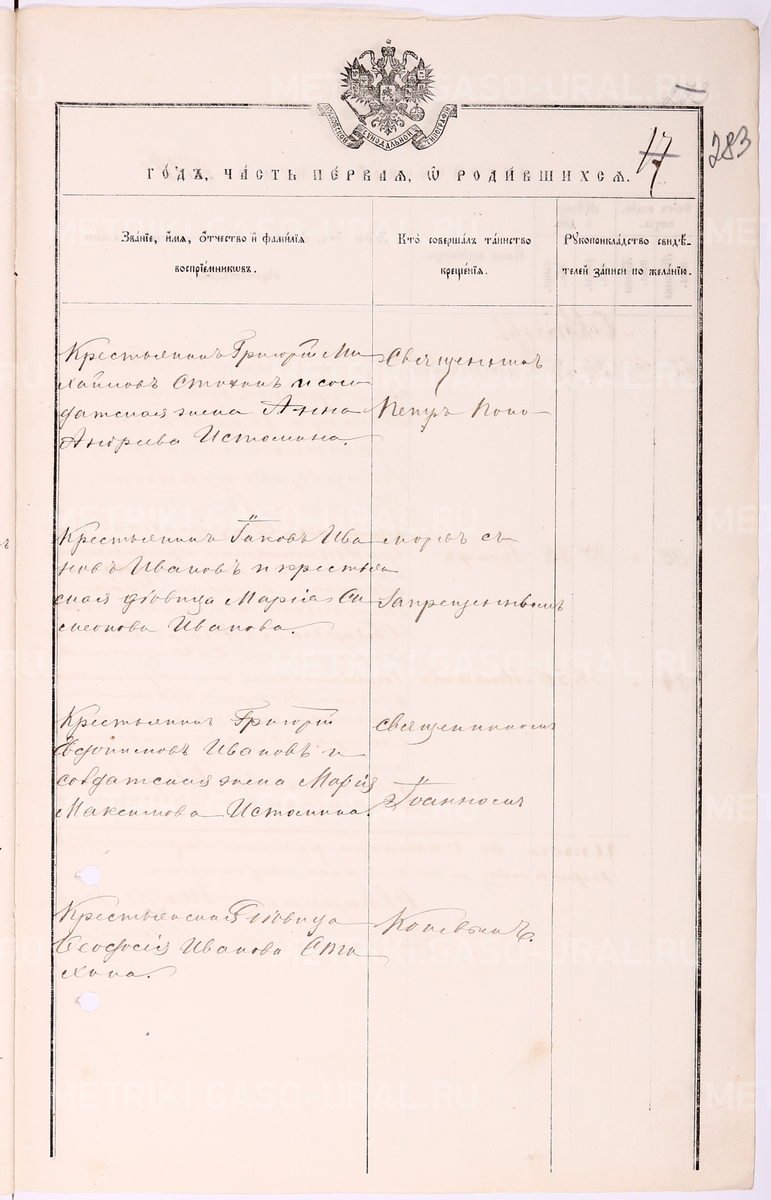 МОСКОВСКОЙ СѴНОДАЛЬНОЙ ТИПОГРАФІИ
17
283
ГОДЪ, ЧАСТЬ ПЕРВАЯ, Ѡ РОДИВШИХСЯ.
Званіе, имя, отчество и фамилія
воспріемниковъ.
Кто совершалъ таинство
крещенія.
Рукоприкладство свидѣ-
телей записи по желанію.
Крестьянинъ Григорій Ми
хайловъ Стахинъ и сол
датская жена Анна
Андреева Истомина.
Священникъ
Петръ Попо
Крестьянинъ Іаковъ Ива
новъ Ивановъ и крестья
нская дѣвица Марія Си
меонова Иванова.
моръ съ
Запрещеннымъ
Крестьянинъ Григорій
Евдокимовъ Ивановъ и
солдатская жена Марія
Максимова Истомина.
священникомъ
Іоанномъ
Крестьянская дѣвица
Ѳеодосія Иванова Ста
хина.
METRIKI.GASO-URAL.RU